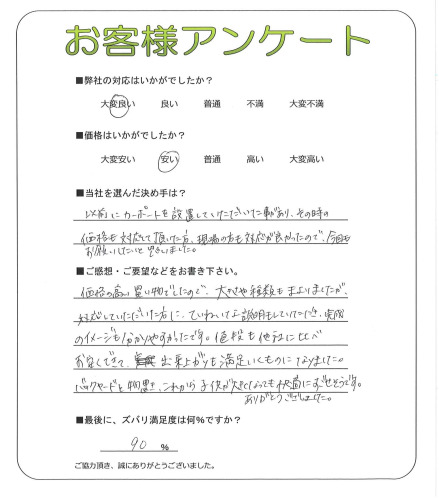 お客様アンケート
■弊社の対応はいかがでしたか?
大変良い 良い 普通 不満 大変不満
■価格はいかがでしたか?
大変安い 安い 普通 高い 大変高い
■当社を選んだ決め手は?
以前にカーポートを設置していただいた事があり、その時の
価格も対応して頂いた方、現場の方も対応が良かったので、今回も
お願いしたいと思いました。
■ご感想・ご要望などをお書き下さい。
価格の高い買い物でしたので、大きさや種類もまよいましたが
対応していただいた方に、ていねいに説明もしていただき、実際
のイメージも分かりやすかったです。値段も他社に比べ
お安くできて、出来上がりも満足いくものになりました。
バックヤードと物置き、これから子供が大きくなっても快適にすごせそうです。
ありがとうございました。
■最後に、ズバリ満足度は何%ですか?
90 %
ご協力頂き、誠にありがとうございました。